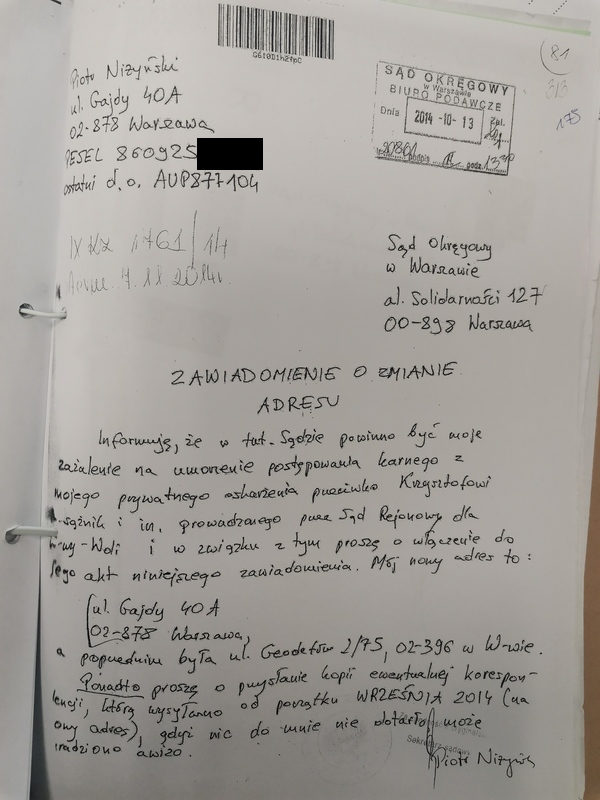 G610D1h2fpC
81
313
175
Piotr Niżyński
ul. Gajdy 40A
02-878 Warszawa
PESEL 860925
ostatni d.o. AUP877104
SĄD OKRĘGOWY
w Warszawie
BIURO PODAWCZE
Dnia 2014-10-13
podpis godz.
IX Kz 1761/14
7.11.2014r.
Sąd Okręgowy
w Warszawie
al. Solidarności 127
00-898 Warszawa
ZAWIADOMIENIE O ZMIANIE
ADRESU
Informuję, że w tut. Sądzie powinno być moje
zażalenie na umorzenie postępowania karnego z
mojego prywatnego oskarżenia przeciwko Krzysztofowi
i in. prowadzonego przez Sąd Rejonowy dla
-Woli i w związku z tym proszę o włączenie do
jego akt niniejszego zawiadomienia. Mój nowy adres to:
ul. Gajdy 40A
02-878 Warszawa,
a poprzednim była ul. Geodetów 2/75, 02-396 w W-wie.
Ponadto proszę o przysłanie kopii ewentualnej korespon-
dencji, którą wysyłano od początku WRZEŚNIA 2014 (na
adres), gdyż nic do mnie nie dotarło, może
awizo.
Sekretarz sądowy
Piotr Niżyński